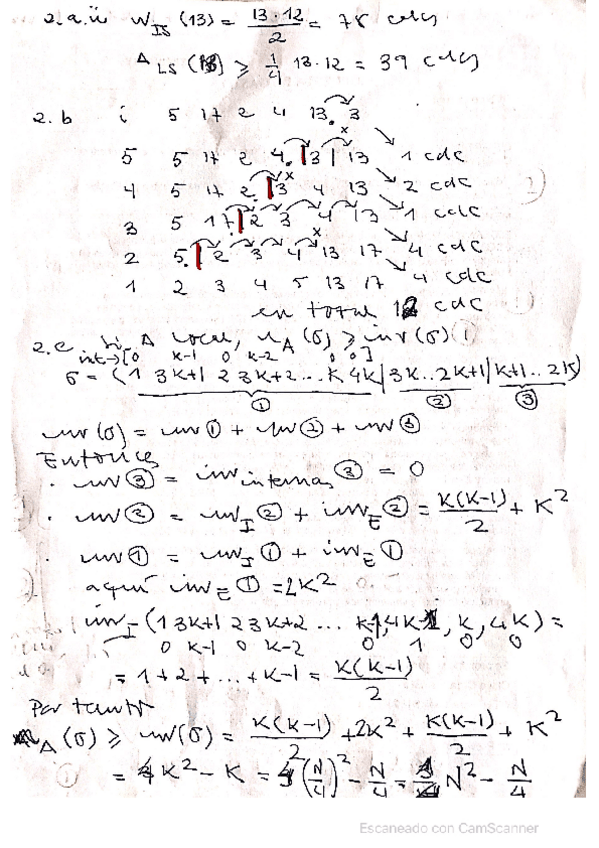 2.a.ii W_IS (13) = 13·12/2 = 78 cdcs
A_LS (13) ≥ 1/4 13·12 = 39 cdcs
2.b i 5 17 2 4 13 3
5 5 17 2 4 3 13 1 cdc
4 5 17 2 3 4 13 2 cdc
3 5 17 2 3 4 13 1 cdc
2 5 2 3 4 13 17 4 cdc
1 2 3 4 5 13 17 4 cdc
en total 12 cdc
2.c Si A local, n_A(σ) ≥ inv(σ)
int→[0 k-1 0 k-2 0 0]
σ = (1 3k+1 2 3k+2 ... k 4k | 3k...2k+1 | k+1...2k)
① ② ③
inv(σ) = inv① + inv② + inv③
Entonces
· inv③ = inv internas ③ = 0
· inv② = inv_I② + inv_E② = k(k-1)/2 + k²
· inv① = inv_I① + inv_E①
aquí inv_E① = 2k²
inv_I (1 3k+1 2 3k+2 ... k-1, 4k-1, k, 4k) =
0 k-1 0 k-2 0 1 0 0
= 1+2+...+k-1 = k(k-1)/2
Por tanto
n_A(σ) ≥ inv(σ) = k(k-1)/2 + 2k² + k(k-1)/2 + k²
= 4k² - k = 4(N/4)² - N/4 = 1/4 N² - N/4
Escaneado con CamScanner